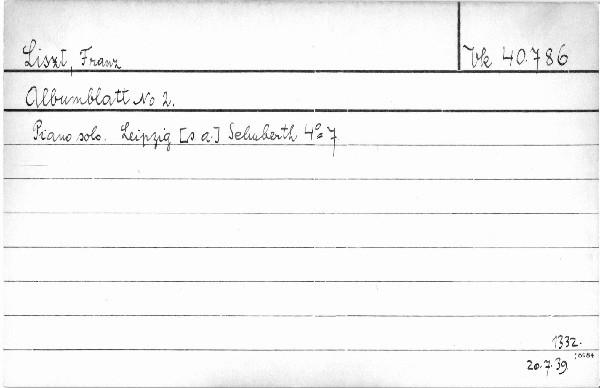 Liszt, Franz
Vk 40.786
Albumblatt No 2.
Piano solo. Leipzig [s a.] Schuberth 4° 7
1332.
20.7.39